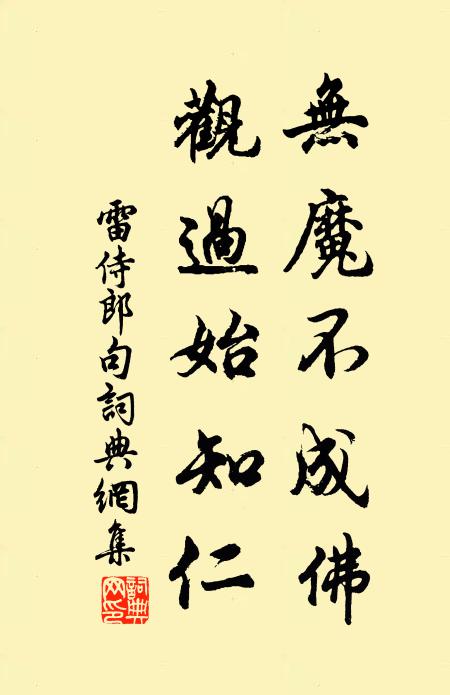 無魔不成佛
觀過始知仁
雷侍郎句詞典網集
詞典網印